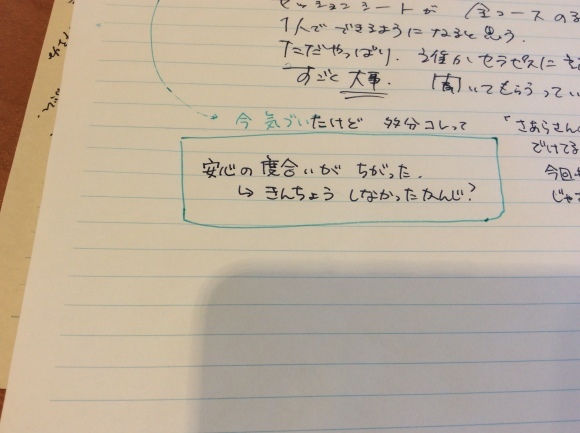 セッションシートが 全コースの
1人でできるようになると思う.
ただやっぱり、誰かセラピスに
すごと大事. 「聞いてもらうってい
今気づいたけど 多分コレって 「さあらさん
でけてる
安心の度合いが ちがった. 今回
↳ きんちょう しなかったかんじ? じゃ